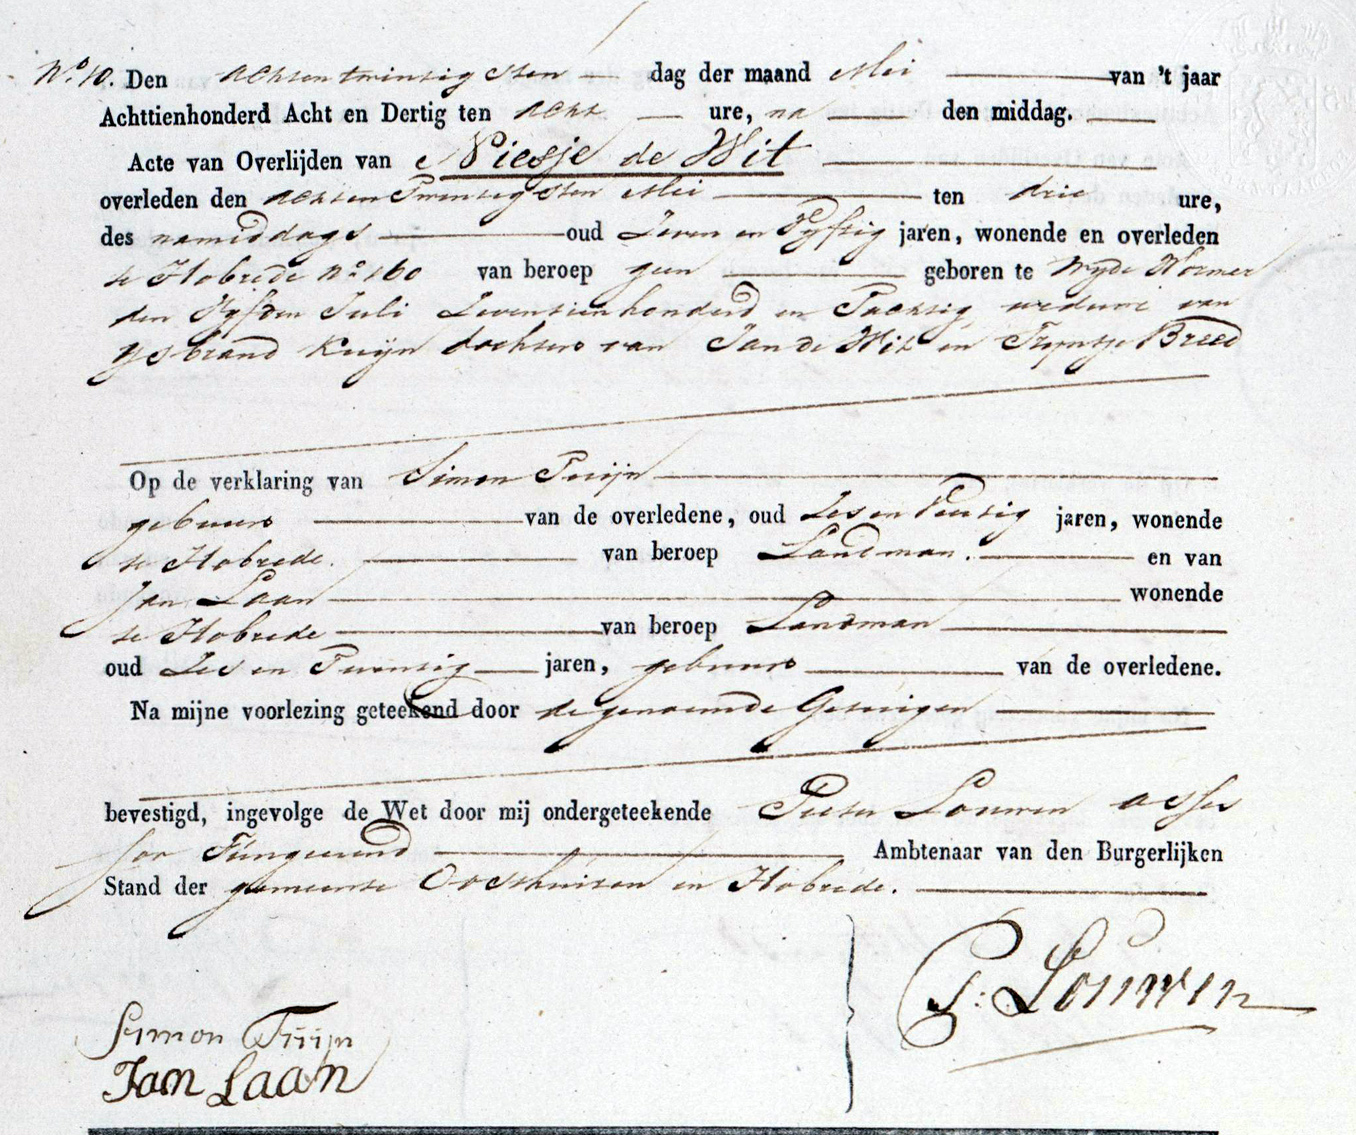 No. 10. Den achtentwintigsten dag der maand Mei van 't jaar
Achttienhonderd Acht en Dertig ten acht ure, na den middag.
Acte van Overlijden van Niesje de Wit
overleden den achtentwintigsten Mei ten drie ure,
des namiddags oud Zeven en Vyftig jaren, wonende en overleden
te Hobrede No. 160 van beroep geen geboren te Wyde Wormer
den Vyfden Juli Zeventienhonderd en Tachtig weduwe van
Ysbrand Kuijn dochter van Jan de Wit en Tryntje Breed
Op de verklaring van Simon Tuijn
gebuur van de overledene, oud Zes en Veertig jaren, wonende
te Hobrede. van beroep Landman. en van
Jan Laan wonende
te Hobrede van beroep Landman
oud Zes en Twintig jaren, gebuur van de overledene.
Na mijne voorlezing geteekend door de genoemde Getuigen
bevestigd, ingevolge de Wet door mij ondergeteekende Pieter Louwen asses
sor Fungeerend Ambtenaar van den Burgerlijken
Stand der gemeente Oosthuisen en Hobrede.
P: Louwen
Symon Tuijn
Jan Laan